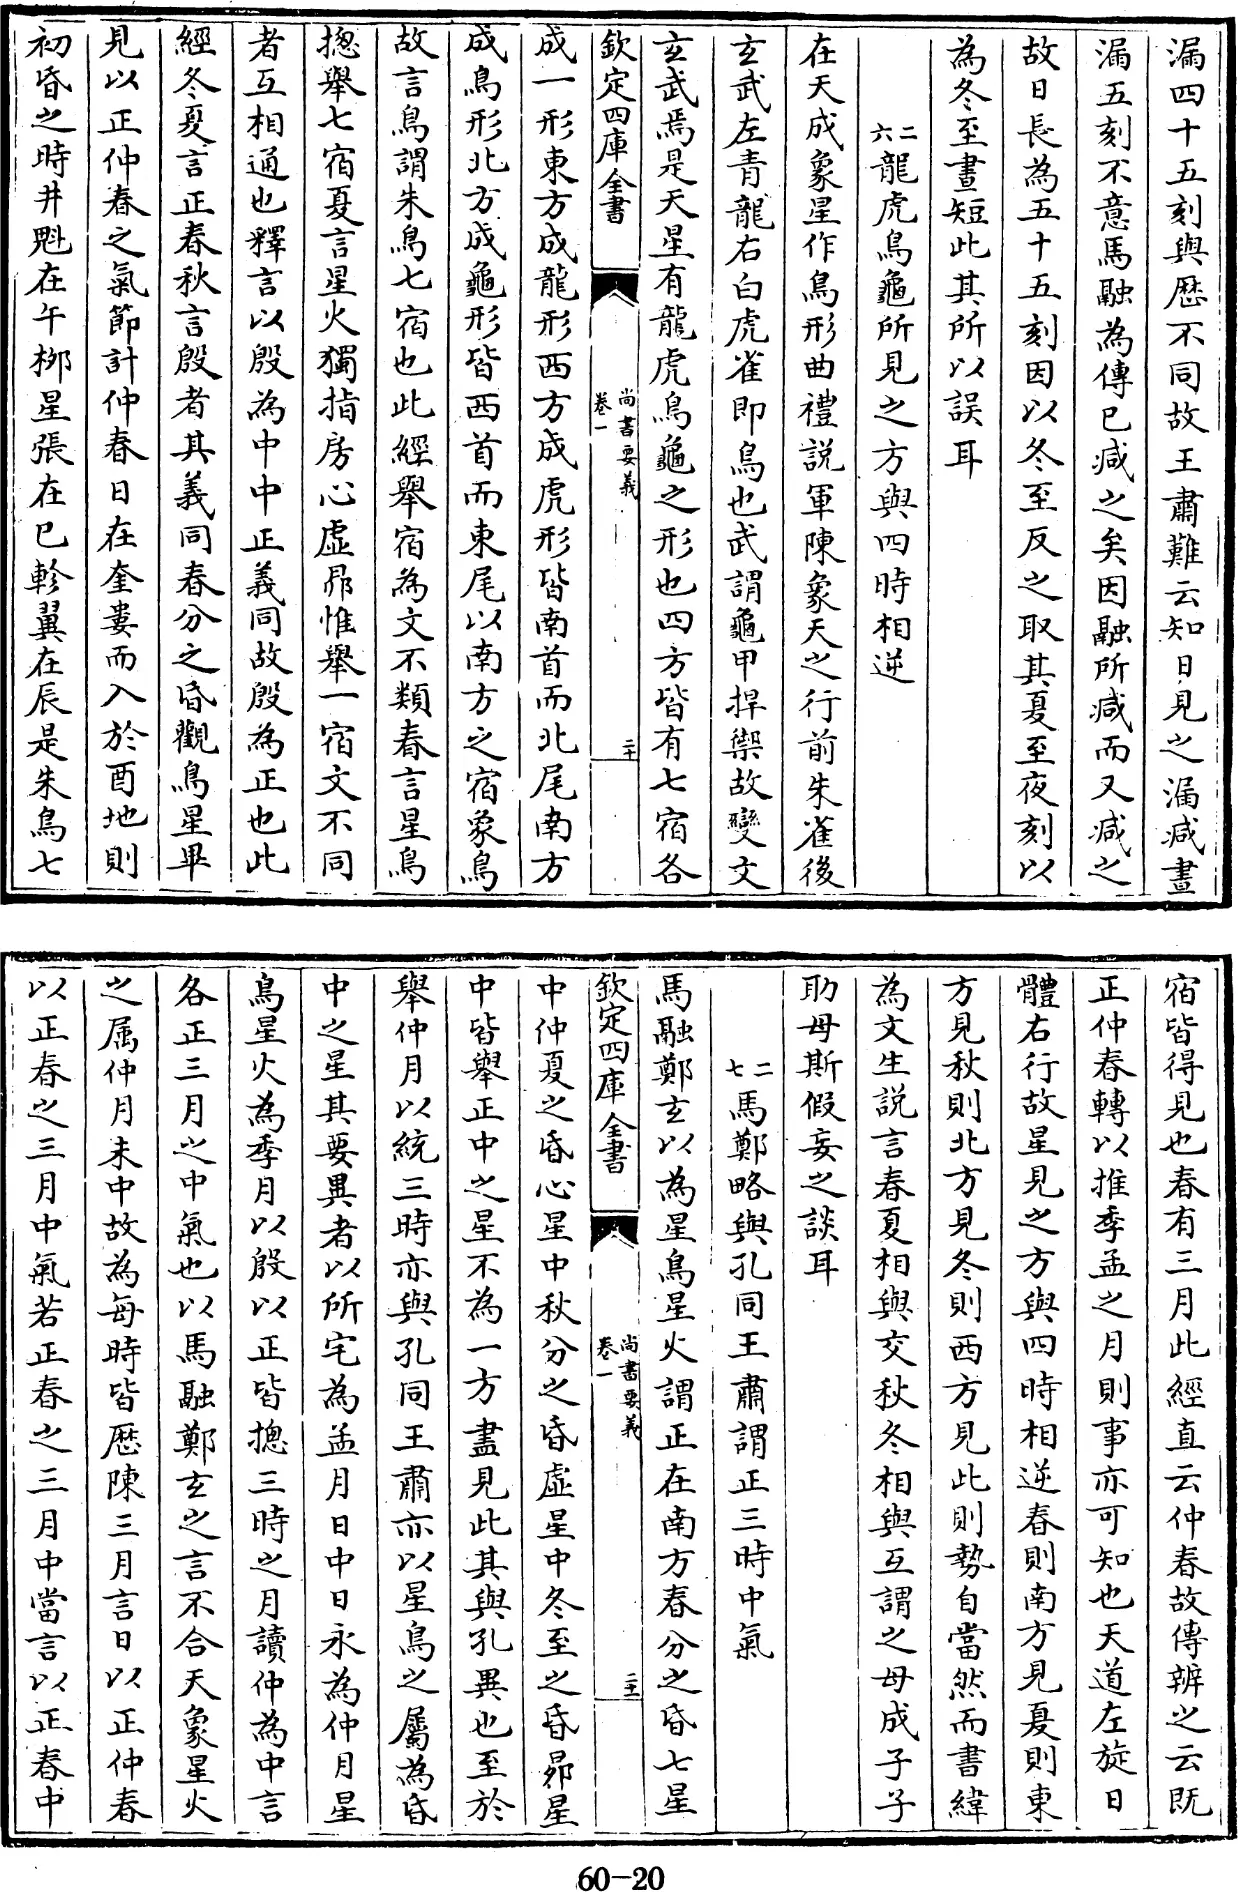 漏四十五刻與歴不同故王肅難云知日見之漏减晝
漏五刻不意馬融為傳已减之矣因融所减而又减之
故日長為五十五刻因以冬至反之取其夏至夜刻以
為冬至晝短此其所以誤耳
二六龍虎鳥龜所見之方與四時相逆
在天成象星作鳥形曲禮說軍陳象天之行前朱雀後
玄武左青龍右白虎雀即鳥也武謂龜甲捍禦故變文
玄武焉是天星有龍虎鳥龜之形也四方皆有七宿各
欽定四庫全書
尚書要義
卷一
二十
成一形東方成龍形西方成虎形皆南首而北尾南方
成鳥形北方成龜形皆西首而東尾以南方之宿象鳥
故言鳥謂朱鳥七宿也此經舉宿為文不類春言星鳥
揔舉七宿夏言星火獨指房心虛昴惟舉一宿文不同
者互相通也釋言以殷為中中正義同故殷為正也此
經冬夏言正春秋言殷者其義同春分之昏觀鳥星畢
見以正仲春之氣節計仲春日在奎婁而入於酉地則
初昏之時井鬼在午栁星張在巳軫翼在辰是朱鳥七
宿皆得見也春有三月此經直云仲春故傳辨之云既
正仲春轉以推季孟之月則事亦可知也天道左旋日
體右行故星見之方與四時相逆春則南方見夏則東
方見秋則北方見冬則西方見此則勢自當然而書緯
為文生說言春夏相與交秋冬相與互謂之母成子子
助母斯假妄之談耳
二七馬鄭略與孔同王肅謂正三時中氣
馬融鄭玄以為星鳥星火謂正在南方春分之昏七星
欽定四庫全書
尚書要義
卷一
二十一
中仲夏之昏心星中秋分之昏虛星中冬至之昏昴星
中皆舉正中之星不為一方盡見此其與孔異也至於
舉仲月以統三時亦與孔同王肅亦以星鳥之屬為昏
中之星其要異者以所宅為孟月日中日永為仲月星
鳥星火為季月以殷以正皆揔三時之月讀仲為中言
各正三月之中氣也以馬融鄭玄之言不合天象星火
之属仲月未中故為每時皆歴陳三月言日以正仲春
以正春之三月中氣若正春之三月中當言以正春中
60-20